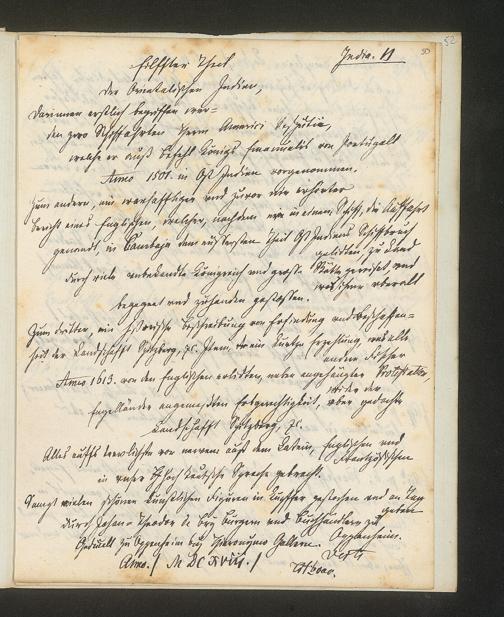 50
52
India. 11
Eilffter Theil
der Orientalischen Indien,
Darinnen erstlich begriffen wer=
den zwo Schiffahrten Herrn Americi Vesputii,
welche er auß Befehl Königs Emanuelis von Portugall
Anno 1501. in Ost Indien vorgenommen.
Zum andern, ein warhafftiger und zuvor nie erhörter
Bericht eines Englischen, welcher, nachdem er in einem Schiff, die Auffahrt
genandt, in Cambaya dem eussersten Theil Ost Indiens Schiffbruch
gelidten, zu Land
durch viele unbekandte Königreich und grosse Stätte gereiset, und
was ihme uberall
begegnet und zuhanden gestossen.
Zum dritten, ein historische Beschreibung von Erfindung und Beschaffen=
heit der Landschafft Spitzberg, ꝛc. Item, ein kurtze Erzehlung, was alle
andere Fischer
Anno 1613. von den Englischen erlidten, neben angehengter Protestation,
wider der
Engelländer angemaßten Rechtgerechtigkeit, uber gedachte
Landschafft Spitzberg, ꝛc.
Alles auffs trewlichste von newem auß dem Latein, Englischen und
Frantzösischen
in unser Hochteutsche Sprache gebracht.
Sampt vielen schönen kunstlichen Figuren in Kupffer gestochen und an Tag
geben
durch Johan-Theodor de Bry Burgern und Buchhändlern zu
Oppenheim.
Gedruckt zu Oppenheim bey Hieronymo Gallern.
Anno. / M DC XVIII. /